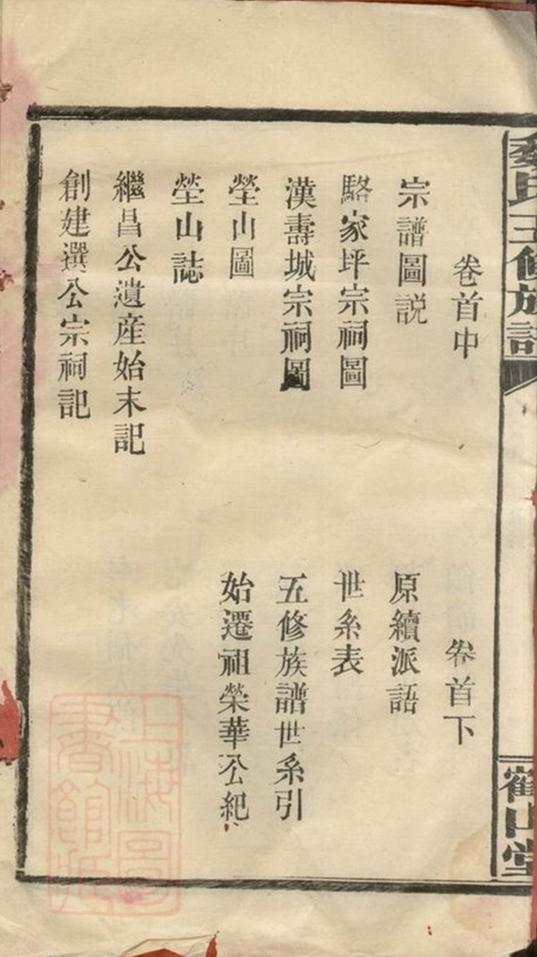 氏五修族譜
山堂
卷首中
宗譜圖説
駱家坪宗祠圖
漢壽城宗祠圖
塋山圖
塋山誌
繼昌公遺産始末記
創建選公宗祠記
卷首下
原續派語
世系表
五修族譜世系引
始遷祖榮華公紀
上海圖
書館藏